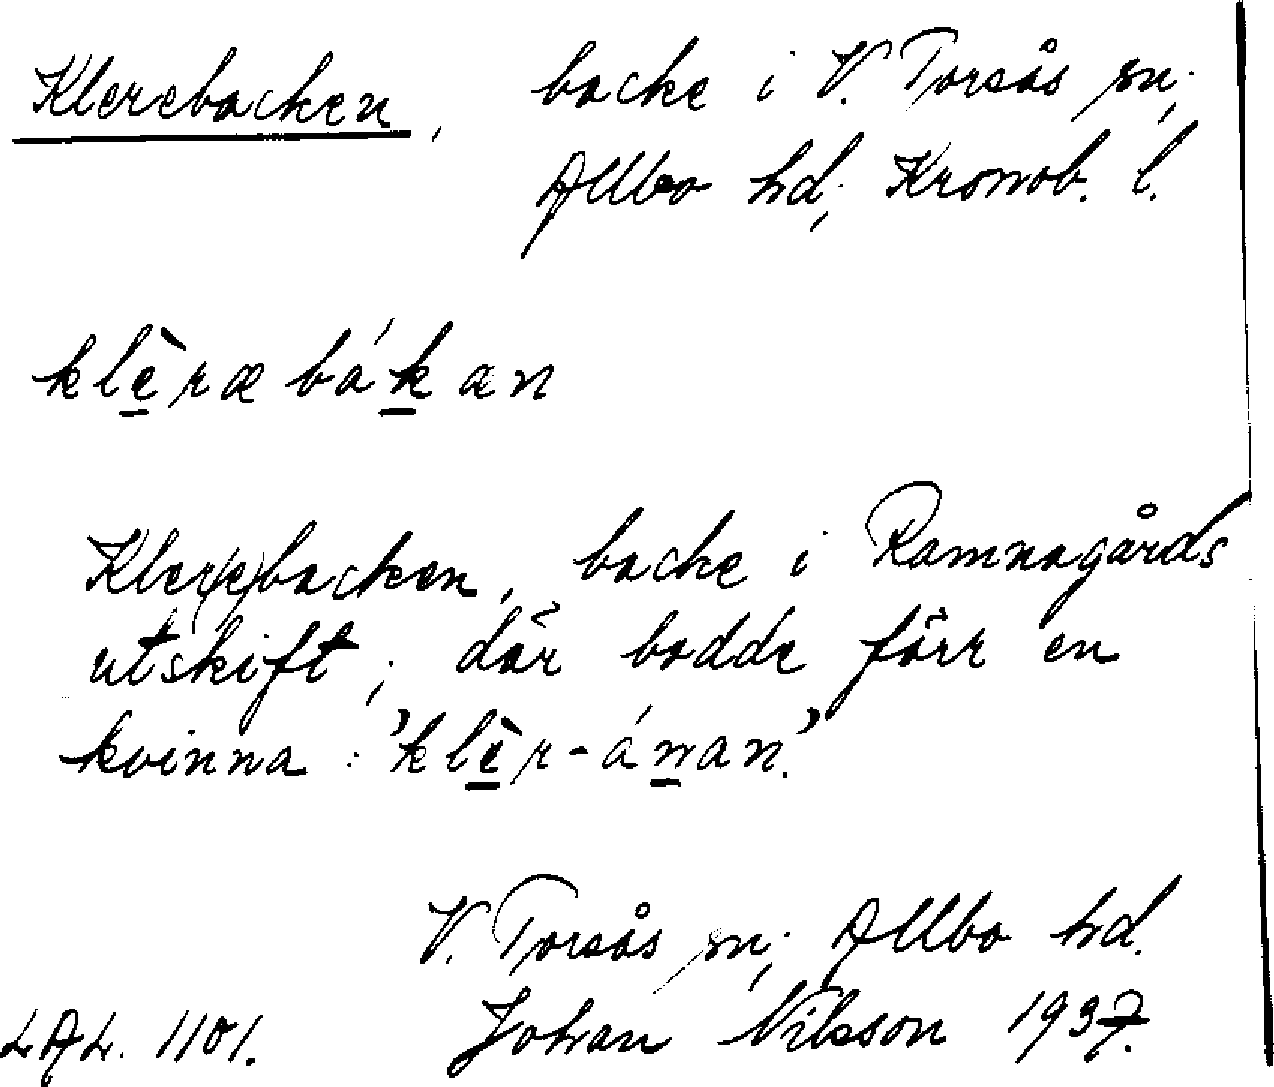 Klerebacken, backe i V. Torsås sn.,
Allbo hd., Kronob. l.
klèræ bákæn
Kler(e)backen, backe i Ramnagårds
utskift; där bodde förr en
kvinna: 'klèr-ánan'.
V. Torsås sn., Allbo hd.
LAL. 1101. Johan Nilsson 1937.